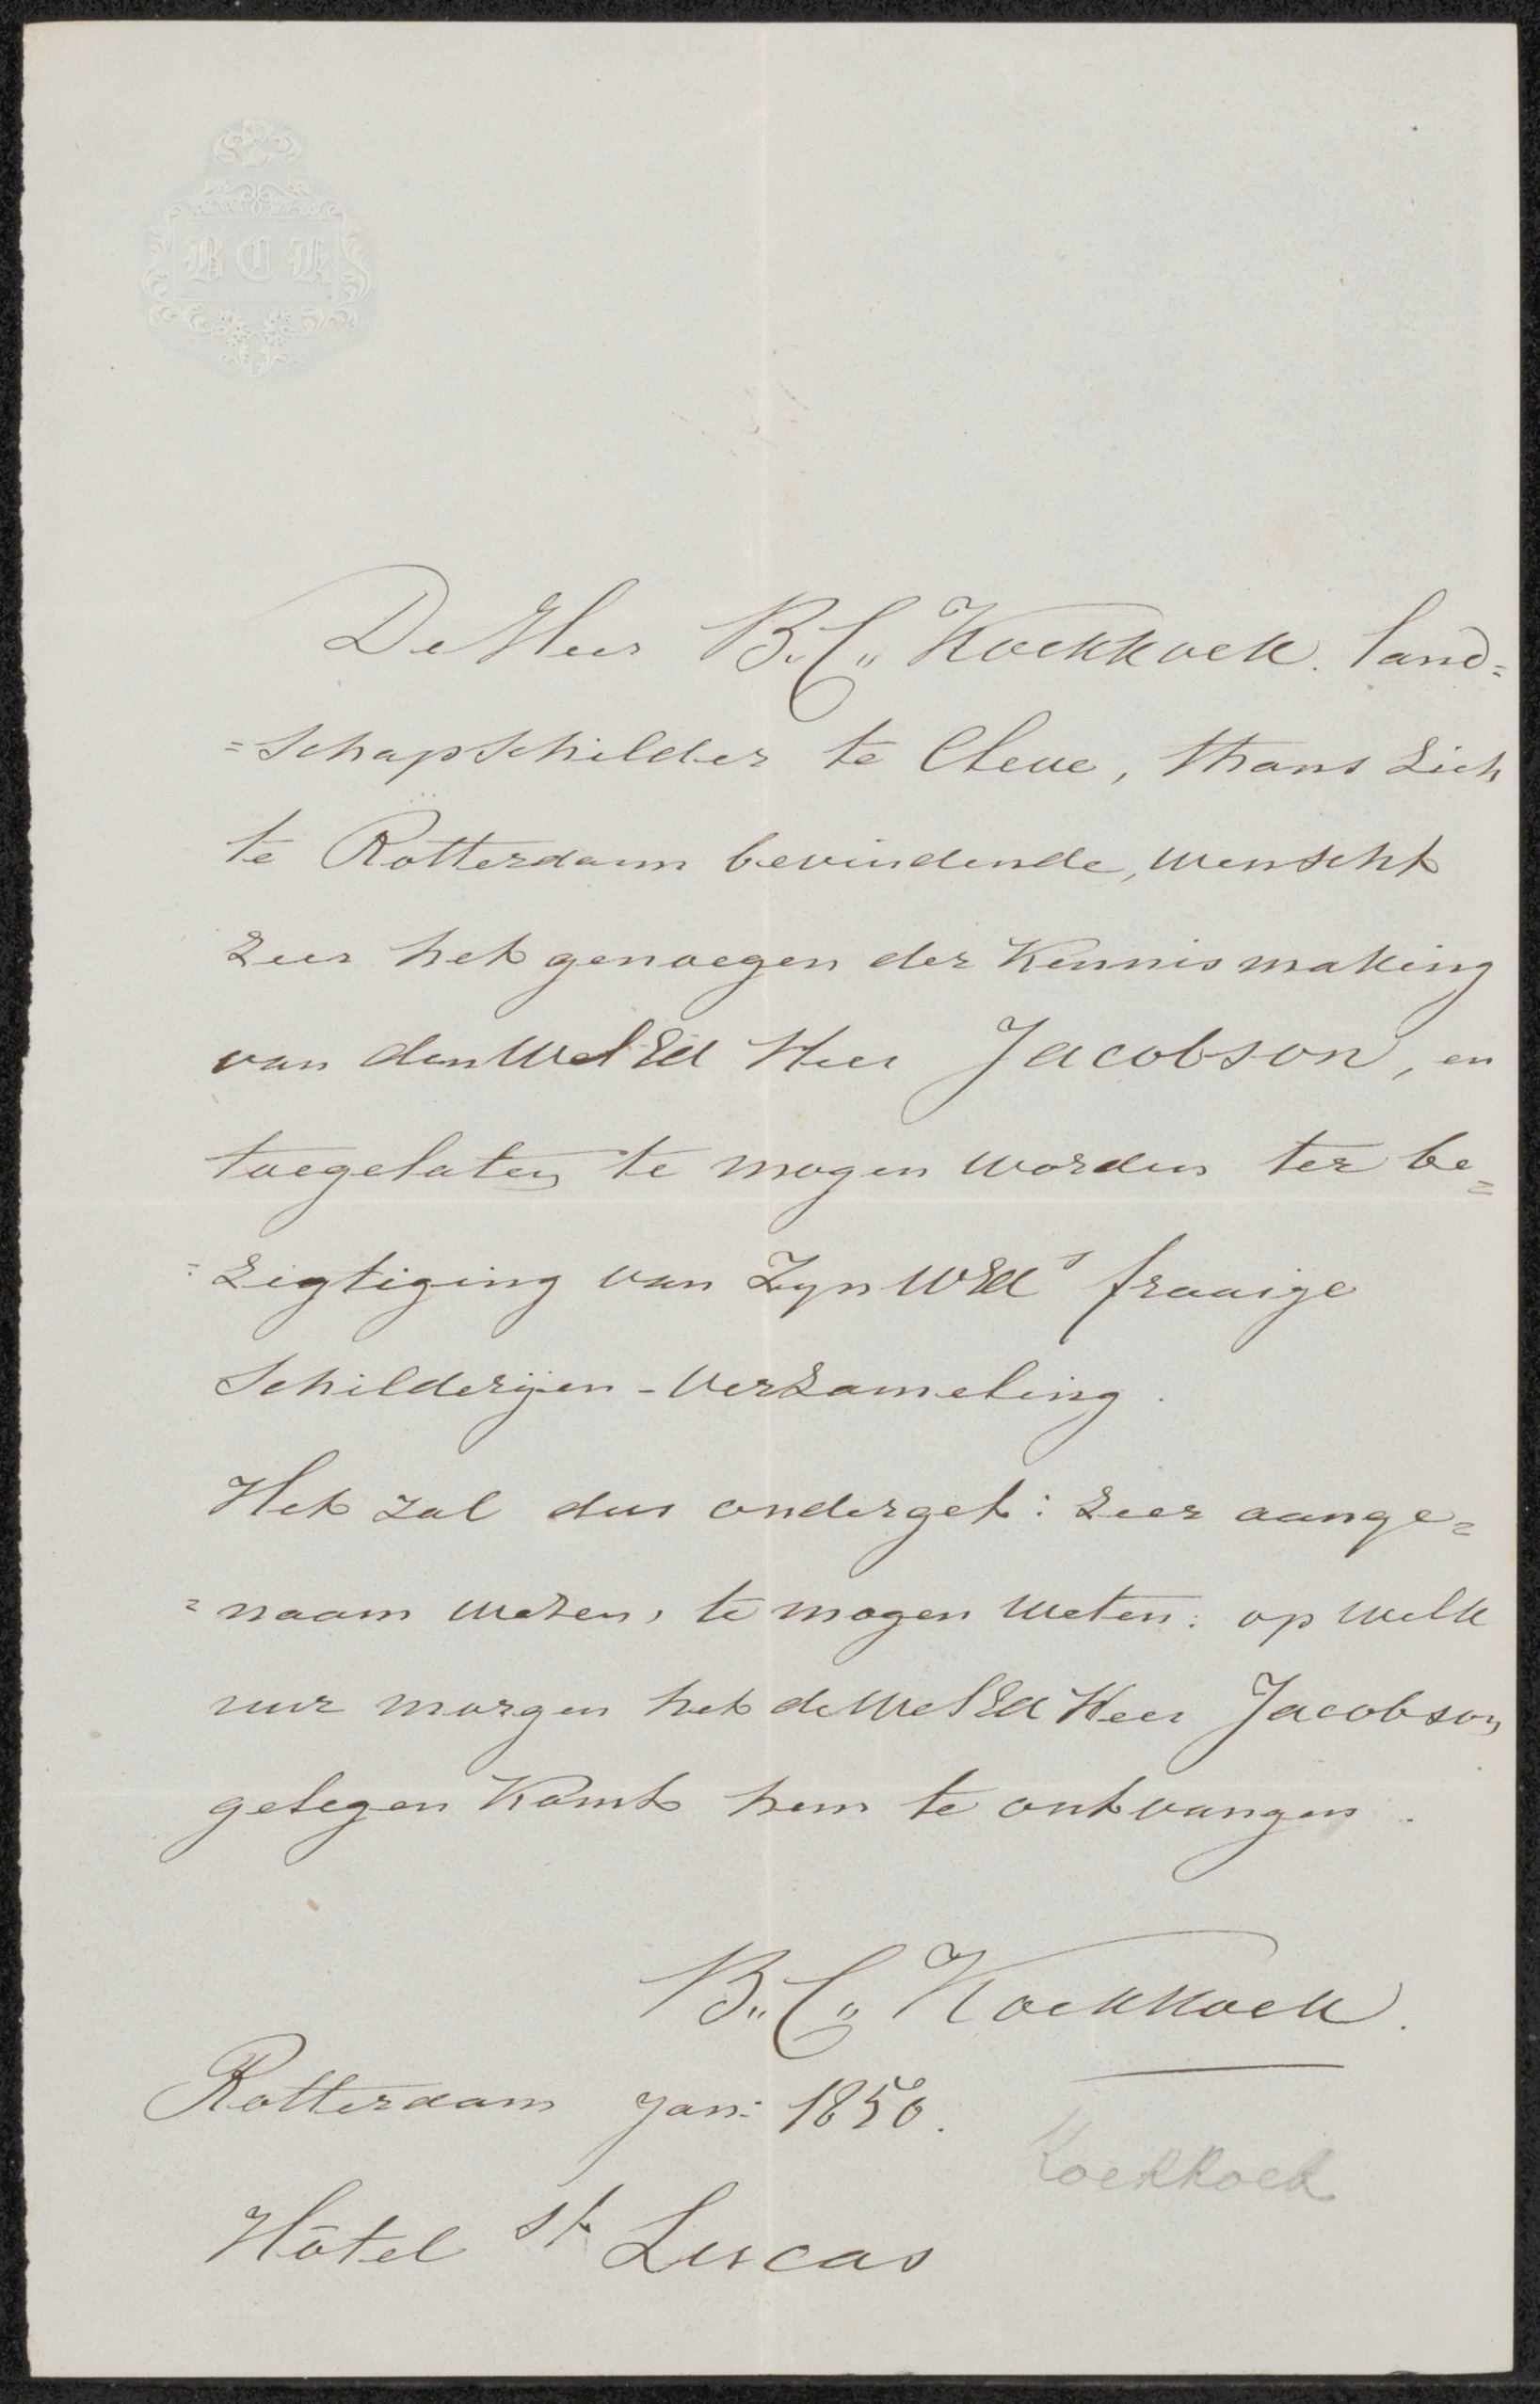 BCK
De Heer B. C. Koekkoek. land=
=schapschilder te Cleve, thans zich
te Rotterdam bevindende, wenscht
zeer het genoegen der Kennismaking
van den WelEd Heer Jacobson, en
toegelaten te mogen worden ter be=
=zigtiging van Zyn WEds fraaije
Schilderijen-Verzameling.
Het zal dus onderget: zeer aange=
=naam wezen, te mogen weten: op welk
uur morgen het de WelEd Heer Jacobson
gelegen Komt hem te ontvangen.
B. C. Koekkoek.
Rotterdam Jan: 1850.
Koekkoek
Hôtel St Lucas